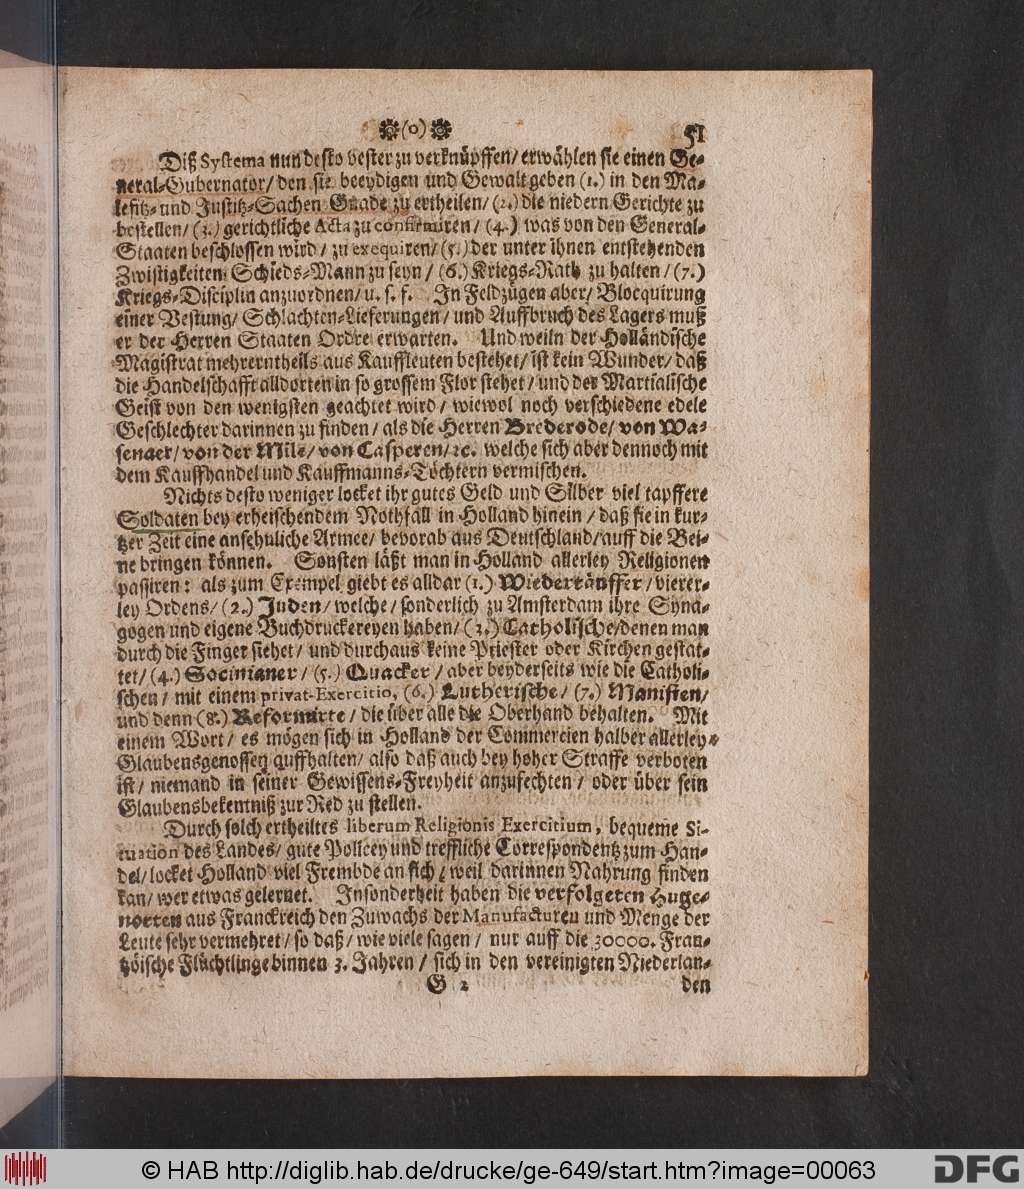 (o) 51
Diß Systema nun desto bester zu verknüpffen/ erwählen sie einen Ge-
neral-Gubernator/ den sie beeydigen und Gewalt geben (1.) in den Ma-
lefitz- und Justitz-Sachen Gnade zu ertheilen/ (2.) die niedern Gerichte zu
bestellen/ (3.) gerichtliche Acta zu confirmiren/ (4.) was von den General-
Staaten beschlossen wird/ zu exequiren/ (5.) der unter ihnen entstehenden
Zwistigkeiten Schieds-Mann zu seyn/ (6.) Kriegs-Rath zu halten/ (7.)
Kriegs-Disciplin anzuordnen/ u. s. f. In Feldzügen aber/ Blocquirung
einer Vestung/ Schlachten-Lieferungen/ und Auffbruch des Lagers muß
er der Herren Staaten Ordre erwarten. Und weiln der Holländische
Magistrat mehrerntheils aus Kauffleuten bestehet/ ist kein Wunder/ daß
die Handelschafft alldorten in so grossem Flor stehet/ und der Martialische
Geist von den wenigsten geachtet wird/ wiewol noch verschiedene edele
Geschlechter darinnen zu finden/ als die Herren Brederode/ von Wa-
senaer/ von der Mile/ von Casperen/ ꝛc. welche sich aber dennoch mit
dem Kauffhandel und Kauffmanns-Töchtern vermischen.
Nichts desto weniger locket ihr gutes Geld und Silber viel tapffere
Soldaten bey erheischendem Nothfall in Holland hinein/ daß sie in kur-
tzer Zeit eine ansehnliche Armee/ bevorab aus Deutschland/ auff die Bei-
ne bringen können. Sonsten läßt man in Holland allerley Religionen
passiren: als zum Exempel giebt es alldar (1.) Wiedertäuffer/ vierer-
ley Ordens/ (2.) Juden/ welche/ sonderlich zu Amsterdam ihre Syna-
gogen und eigene Buchdruckereyen haben/ (3.) Catholische/ denen man
durch die Finger siehet/ und durchaus keine Priester oder Kirchen gestat-
tet/ (4.) Socinianer/ (5.) Quacker/ aber beyderseits wie die Catholi-
schen/ mit einem privat-Exercitio, (6.) Lutherische/ (7.) Manisten/
und denn (8.) Reformirte/ die über alle die Oberhand behalten. Mit
einem Wort/ es mögen sich in Holland der Commercien halber allerley
Glaubensgenossen auffhalten/ also daß auch bey hoher Straffe verboten
ist/ niemand in seiner Gewissens-Freyheit anzufechten/ oder über sein
Glaubensbekentniß zur Red zu stellen.
Durch solch ertheiltes liberum Religionis Exercitium, bequeme Si-
tuation des Landes/ gute Policey und treffliche Correspondentz zum Han-
del/ locket Holland viel Frembde an sich/ weil darinnen Nahrung finden
kan/ wer etwas gelernet. Insonderheit haben die verfolgeten Huge-
notten aus Franckreich den Zuwachs der Manufacturen und Menge der
Leute sehr vermehret/ so daß/ wie viele sagen/ nur auff die 30000. Fran-
tzöische Flüchtlinge binnen 3. Jahren/ sich in den vereinigten Niederlan-
G 2 den
© HAB http://diglib.hab.de/drucke/ge-649/start.htm?image=00063
DFG